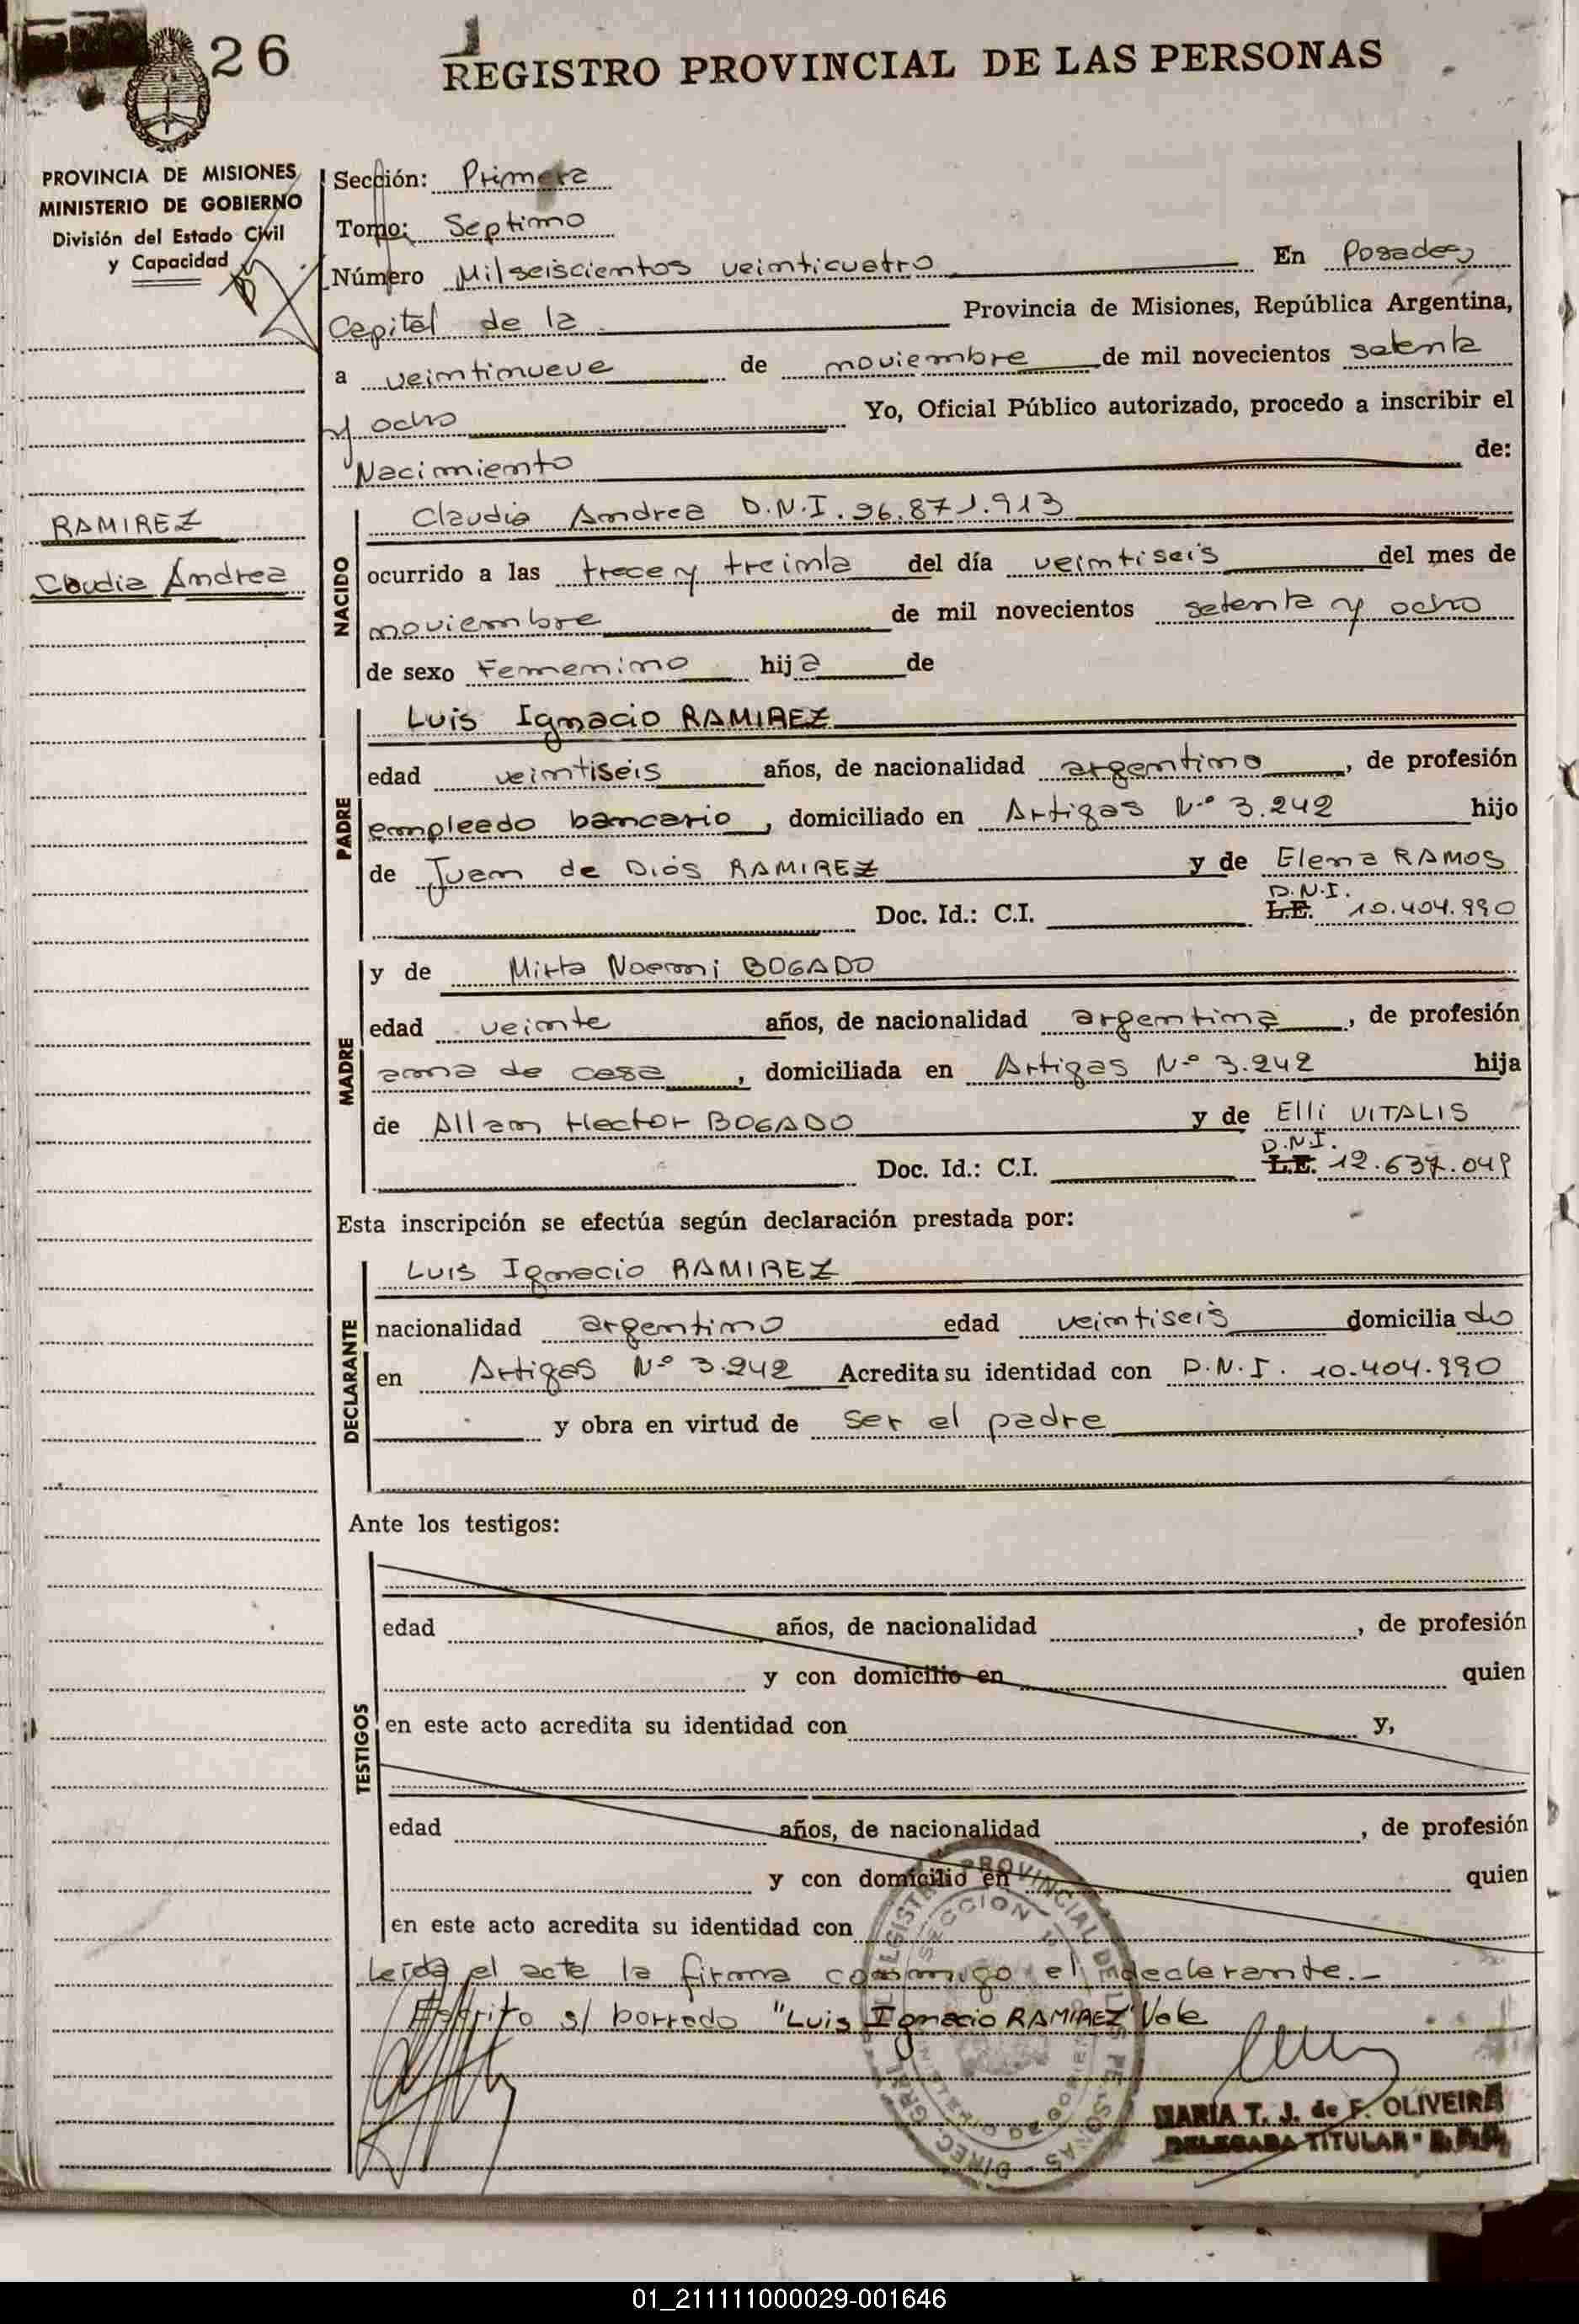 26
REGISTRO PROVINCIAL DE LAS PERSONAS
PROVINCIA DE MISIONES
MINISTERIO DE GOBIERNO
División del Estado Civil
y Capacidad
RAMIREZ
Claudia Andrea
Sección: Primera
Tomo: Septimo
Número Milseiscientos veinticuatro En Posadas
Capital de la Provincia de Misiones, República Argentina,
a veintinueve de noviembre de mil novecientos setenta
y ocho Yo, Oficial Público autorizado, procedo a inscribir el
Nacimiento de:
NACIDO
Claudia Andrea D.N.I. 26.871.913
ocurrido a las trece y treinta del día veintiseis del mes de
noviembre de mil novecientos setenta y ocho
de sexo Femenino hija de
PADRE
Luis Ignacio RAMIREZ
edad veintiseis años, de nacionalidad argentino, de profesión
empleado bancario, domiciliado en Artigas Nº 3.242 hijo
de Juan de Dios RAMIREZ y de Elena RAMOS
D.N.I.
Doc. Id.: C.I. L.E. 10.404.990
MADRE
y de Mirta Noemi BOGADO
edad veinte años, de nacionalidad argentina, de profesión
ama de casa, domiciliada en Artigas Nº 3.242 hija
de Allan Hector BOGADO y de Elli VITALIS
D.N.I.
Doc. Id.: C.I. L.E. 12.637.049
Esta inscripción se efectúa según declaración prestada por:
DECLARANTE
Luis Ignacio RAMIREZ
nacionalidad argentino edad veintiseis domiciliado
en Artigas Nº 3.242 Acredita su identidad con D.N.I. 10.404.990
y obra en virtud de ser el padre
Ante los testigos:
TESTIGOS
edad años, de nacionalidad , de profesión
y con domicilio en quien
en este acto acredita su identidad con y,
edad años, de nacionalidad , de profesión
y con domicilio en quien
en este acto acredita su identidad con
Leida el acta la firma conmigo el declarante.-
Escrito s/ borrado "Luis Ignacio RAMIREZ" Vale
MARIA T. J. de F. OLIVEIRA
DELEGADA TITULAR
01_211111000029-001646